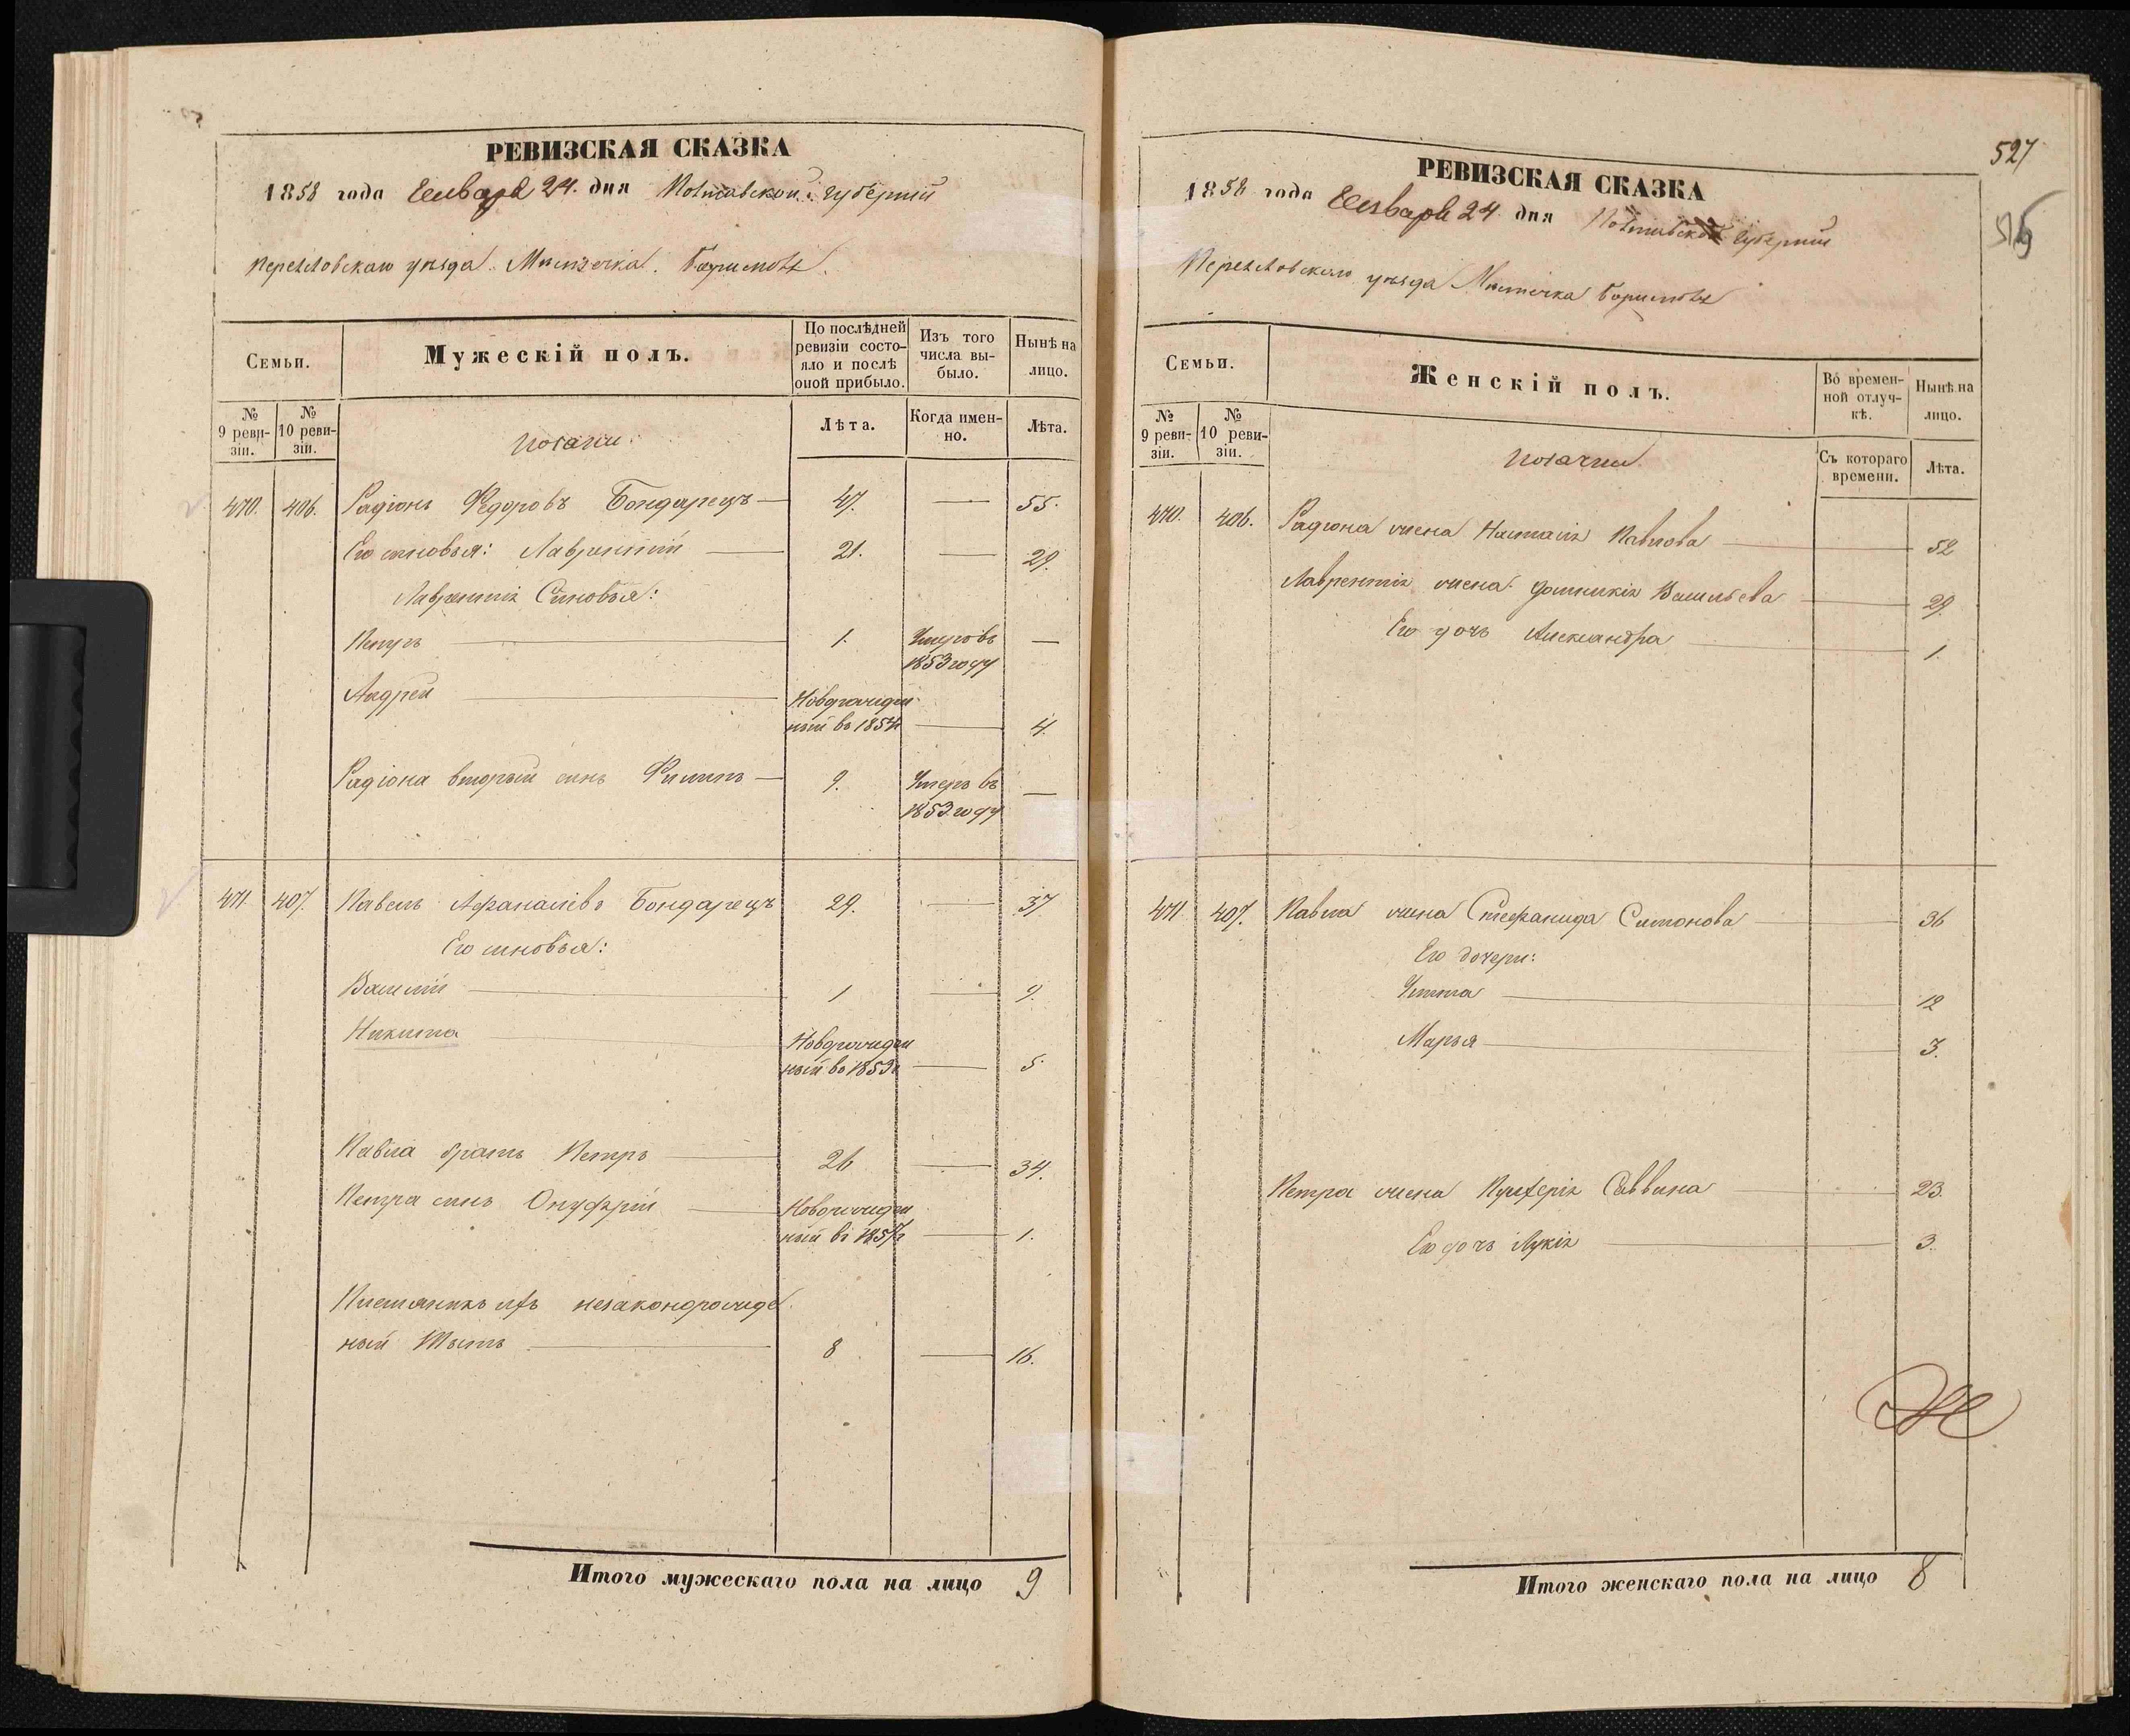 РЕВИЗСКАЯ СКАЗКА
1858 года Генваря 24. дня Полтавской губерніи
Переяславскаго уѣзда. Мѣстечка. Борисполя.
Семьи.
Мужескій полъ.
По послѣдней ревизіи состояло и послѣ оной прибыло.
Изъ того числа выбыло.
Нынѣ на лицо.
№ 9 ревизіи.
№ 10 ревизіи.
Козаки.
Лѣта.
Когда именно.
Лѣта.
470. 406. Радіонъ Федоровъ Бондарецъ 47. 55.
Его сыновья: Лаврентій 21. 29.
Лаврентія Сыновья:
Петръ 1. Умеръ въ
1853 году
Андрей Новорожден
ный въ 1854 4.
Радіона вторый сынъ Филипъ 9. Умеръ въ
1853 году
471 407. Павелъ Афанасіевъ Бондарецъ 29. 37
Его сыновья:
Василій 1 9.
Никита Новорожден
ный въ 1853 5.
Павла братъ Петръ 26 34.
Петра сынъ Онуфрій Новорожден
ный въ 1857 1.
Племяникъ ихъ незаконорожде
ный 8 16.
Итого мужескаго пола на лицо 9
527
РЕВИЗСКАЯ СКАЗКА
1858 года Генваря 24 дня Полтавской Губерніи
Переяславскаго уѣзда Мѣстечка Борисполя
Семьи.
Женскій полъ.
Во временной отлучкѣ.
Нынѣ на лицо.
№ 9 ревизіи.
№ 10 ревизіи.
Козачки.
Съ котораго времени.
Лѣта.
470. 406. Радіона жена Наталія Павлова 52
Лаврентія жена Домникія Васильева 29.
Его дочь Александра 1.
471 407. Павла жена Стефанида Симонова 36
Его дочери:
Улита 12
Марья 3.
Петра жена Пулхерія Саввина 23.
Его дочь Лукія 3.
Итого женскаго пола на лицо 8